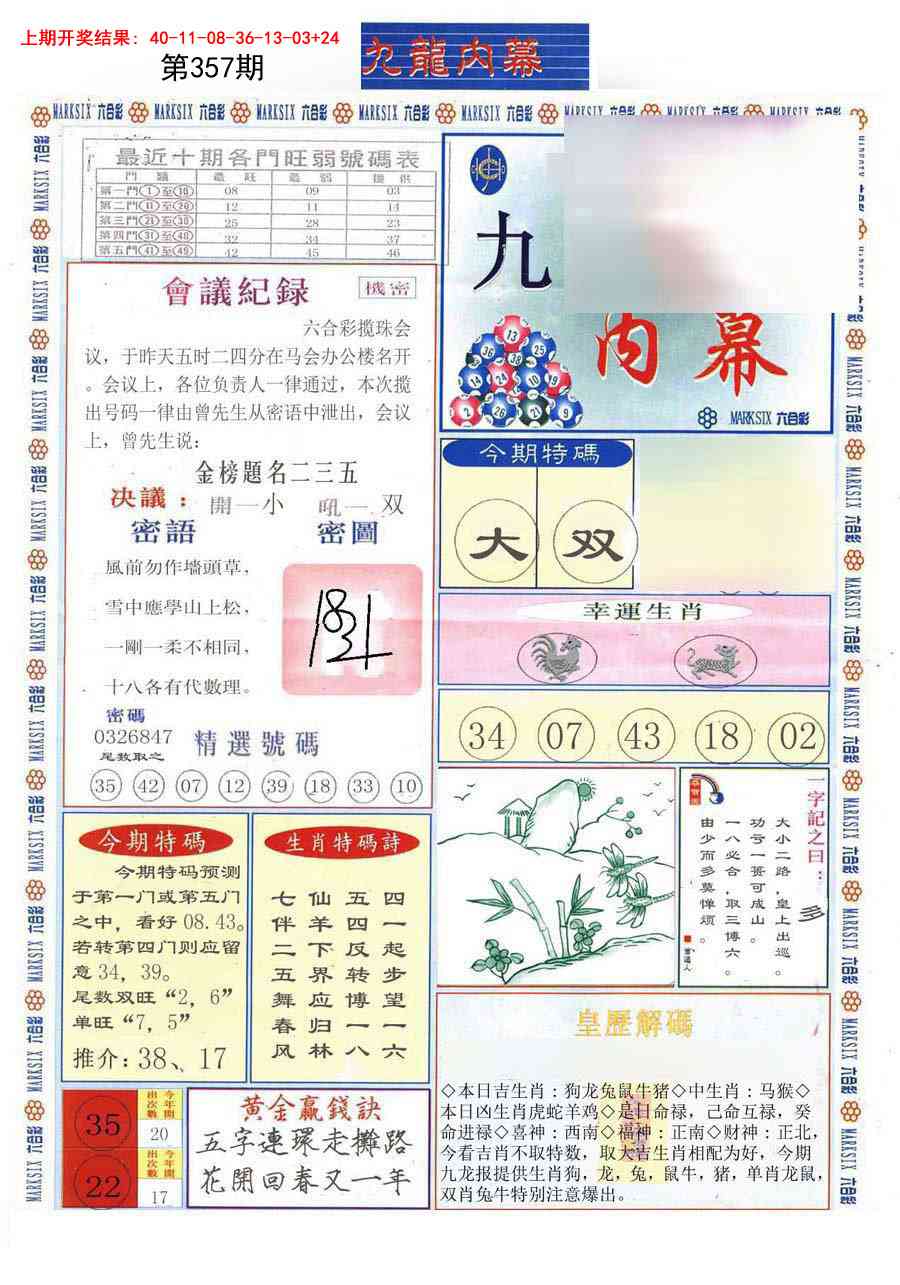 上期开奖结果: 40-11-08-36-13-03+24
第357期
九龍内幕
MARKSIX 六合彩 MARKSIX 六合彩 MARKSIX 六合彩 MARKSIX 六合彩 MARKSIX 六合彩 MARKSIX 六合彩 MARKSIX 六合彩 MARKSIX 六合彩
最近十期各門旺弱號碼表
門 類 最 旺 最 弱 提 供
第一門①至⑩ 08 09 03
第二門⑪至⑳ 12 11 14
第三門㉑至㉚ 25 28 23
第四門㉛至㊵ 32 34 37
第五門㊶至㊾ 42 45 46
九
内幕
13
36 38 25
14 24 10 19
2 26 21 9
MARKSIX 六合彩
會議紀録
機密
六合彩揽珠会
议，于昨天五时二四分在马会办公楼名开
。会议上，各位负责人一律通过，本次揽
出号码一律由曾先生从密语中泄出，会议
上，曾先生说:
金榜題名二三五
决議： 開一小 吼一 双
密語 密圖
風前勿作墻頭草，
雪中應學山上松，
一剛一柔不相同，
十八各有代數理。
密碼
0326847
尾数取之
精選號碼
35 42 07 12 39 18 33 10
今期特碼
大 双
幸運生肖
34 07 43 18 02
一字記之曰：
多
大小二路，皇上出巡。
功亏一篑可成山。
一八必合，取三博六。
由少而多莫惮烦。
今期特碼
今期特码预测
于第一门或第五门
之中，看好08.43。
若转第四门则应留
意34，39。
尾数双旺“2，6”
单旺“7，5”
推介: 38、17
生肖特碼詩
四一起步望一六
五四反转博一八
仙羊下界应归林
七伴二五舞春风
35
今年開出次數
20
22
今年開出次數
17
黄金赢錢訣
五字連環走攤路
花開回春又一年
皇歷解碼
◇本日吉生肖：狗龙兔鼠牛猪◇中生肖：马猴◇
本日凶生肖虎蛇羊鸡◇是日命禄，己命互禄，癸
命进禄◇喜神：西南◇福神：正南◇财神：正北，
今看吉肖不取特数，取大吉生肖相配为好，今期
九龙报提供生肖狗，龙，兔，鼠牛，猪，单肖龙鼠，
双肖兔牛特别注意爆出。